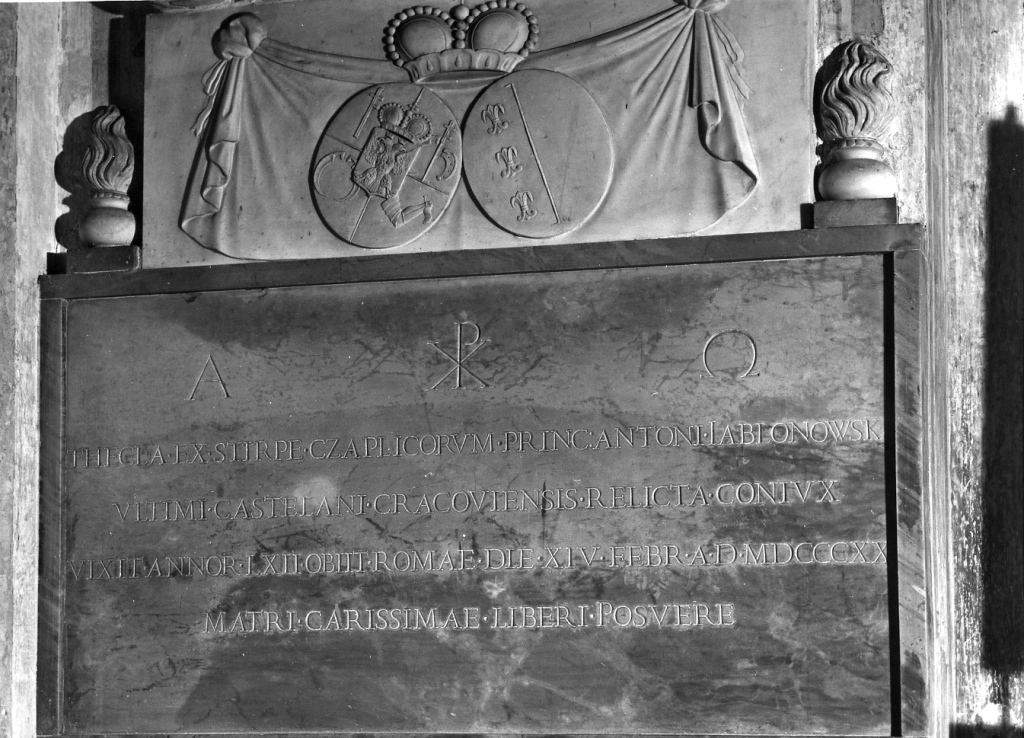 Α ☧ Ω
THECLA·EX·STIRPE·CZAPLICORVM·PRINC·ANTONI·IABLONOWSK
VLTIMI·CASTELANI·CRACOVIENSIS·RELICTA·CONIVX
VIXIT·ANNOR·LXII·OBIIT·ROMAE·DIE·XIV·FEBR·A·D·MDCCCXX
MATRI·CARISSIMAE·LIBERI·POSVERE